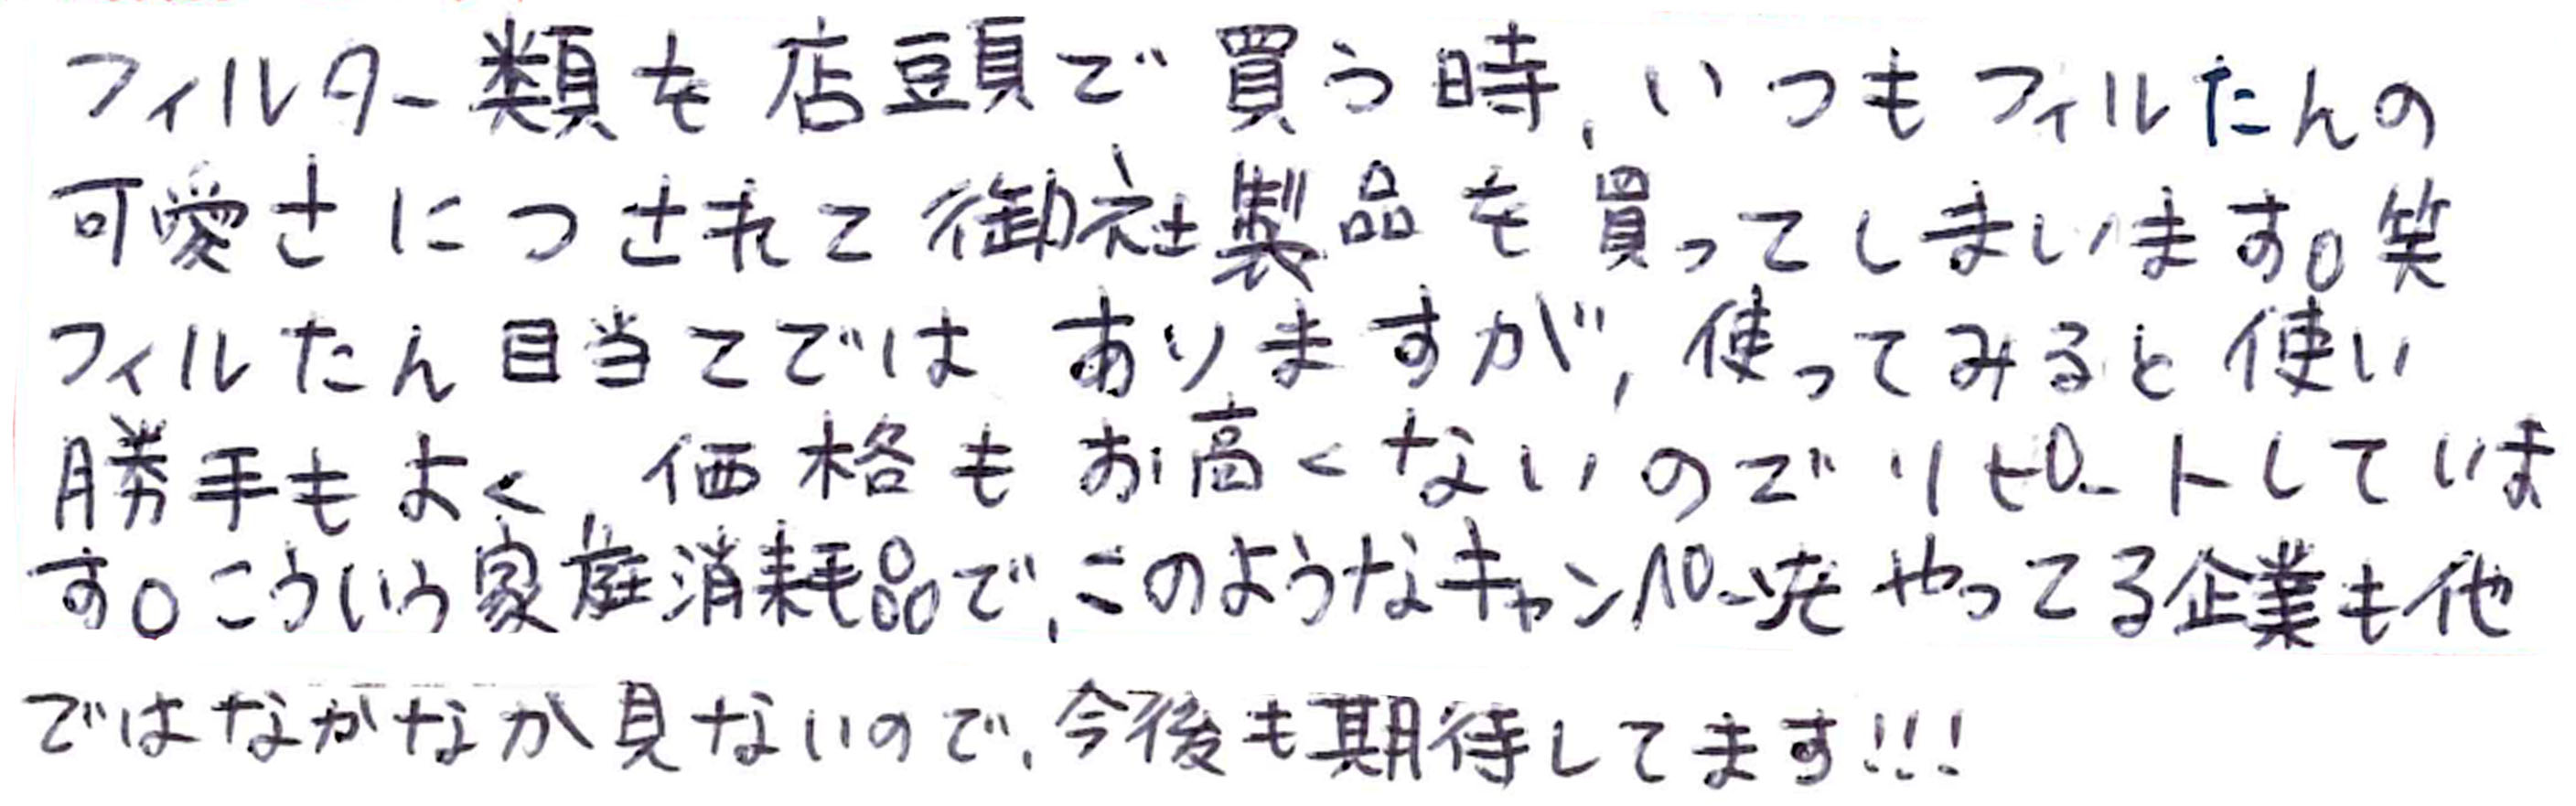 フィルター類を店頭で買う時、いつもフィルたんの
可愛さにつされて御社製品を買ってしまいます。笑
フィルたん目当てではありますが、使ってみると使い
勝手もよく、価格もお高くないのでリピートしていま
す。こういう家庭消耗品で、このようなキャンペーンをやってる企業も他
ではなかなか見ないので、今後も期待してます!!!